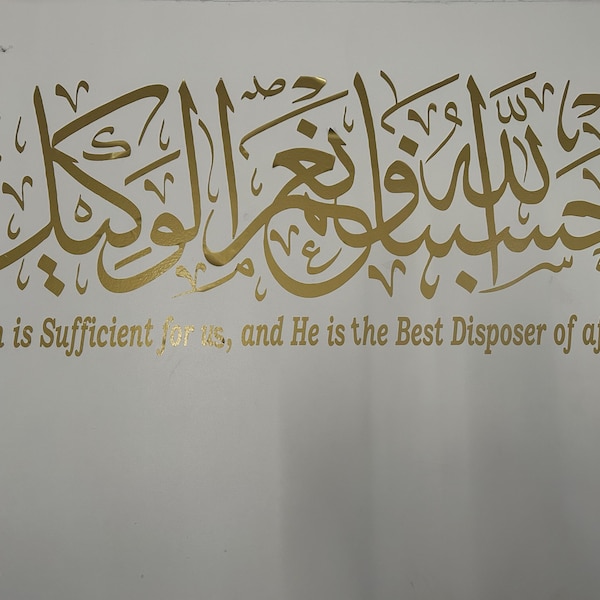 حسبنا الله ونعم الوكيل
is Sufficient for us, and He is the Best Disposer of